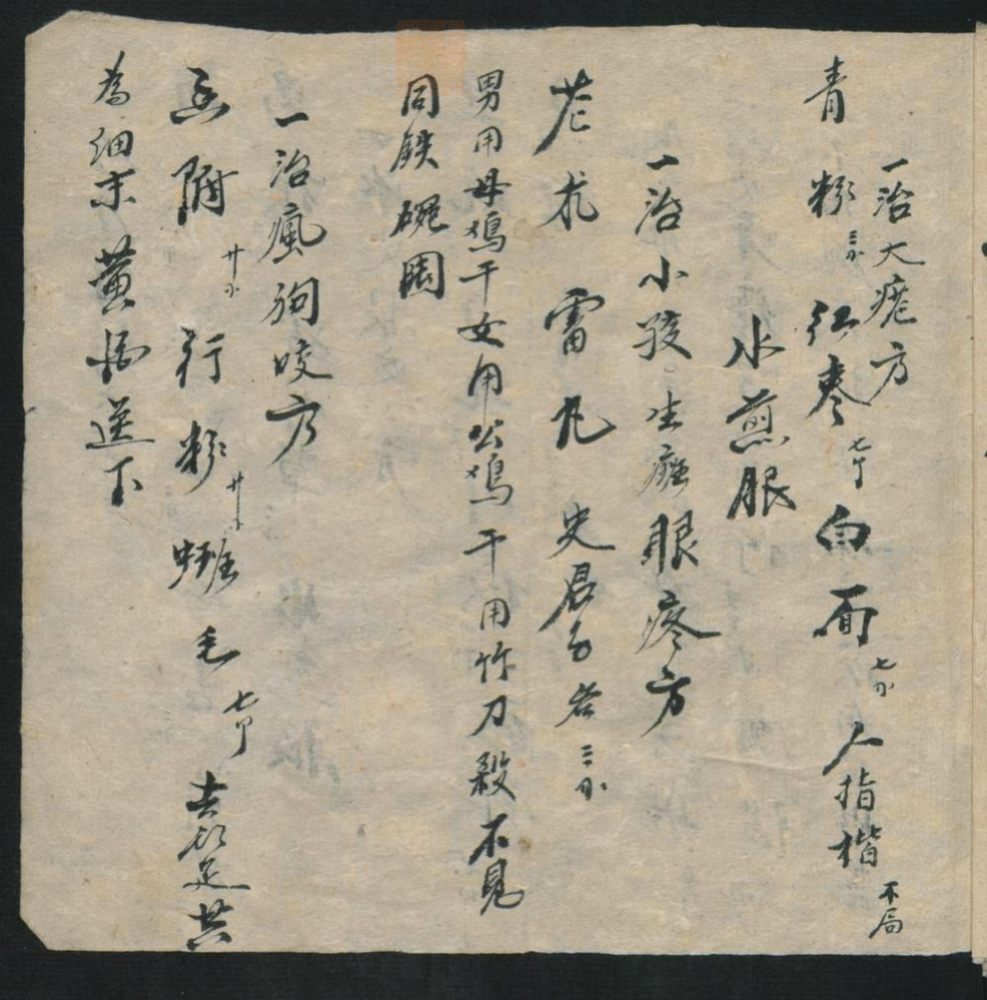 一治大疮方
青粉三分 红枣七个 白面七分 人指楷不局
水煎服
一治小孩生癦眼疼方
芒术 雷凡 史君子各三分
男用母鸡干女用公鸡干用竹刀殺不見
同鉄碗固
一治瘋狗咬方
附廿分 行粉廿分 蟅毛七个 去头足共
為细末黄酒送下